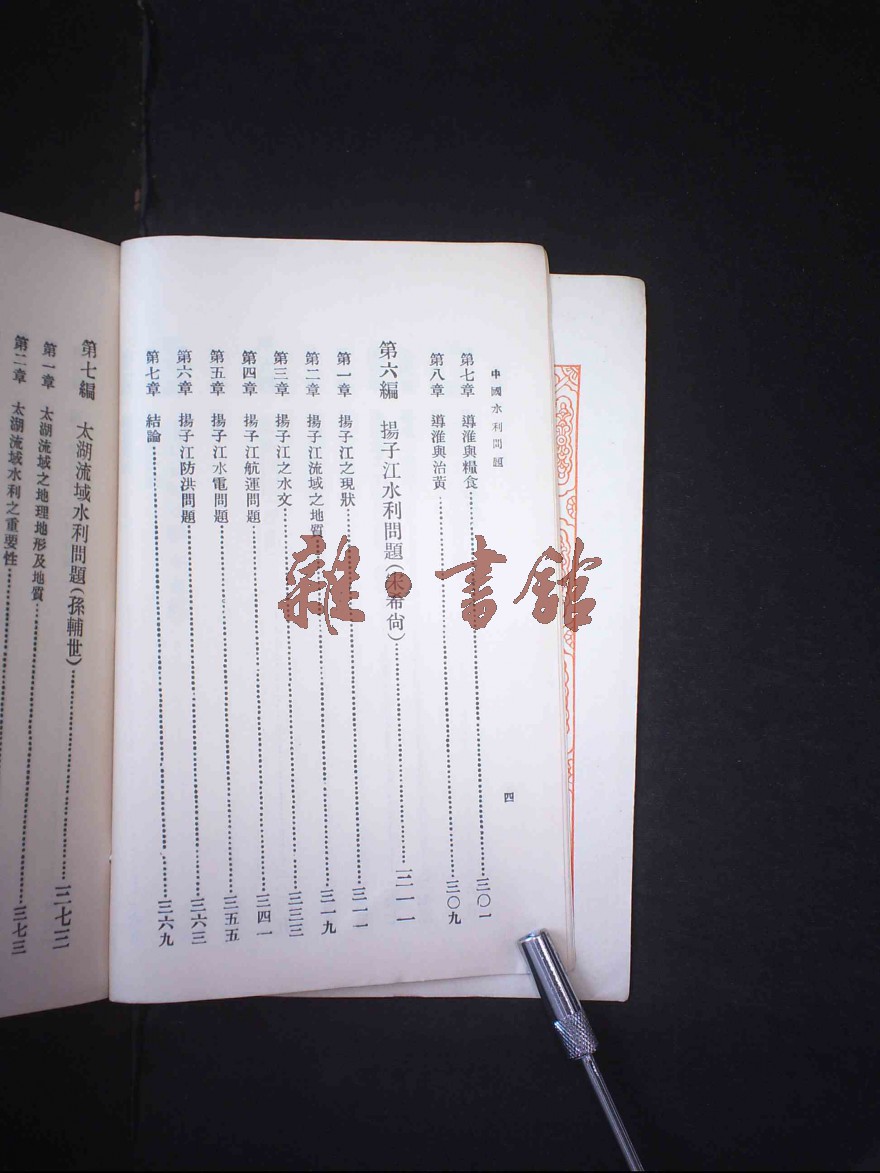 中國水利問題
四
第七章 導淮與糧食 三〇一
第八章 導淮與治黃 三〇九
第六編 揚子江水利問題(宋希尙) 三一一
第一章 揚子江之現狀 三一一
第二章 揚子江流域之地質 三一九
第三章 揚子江之水文 三三三
第四章 揚子江航運問題 三四一
第五章 揚子江水電問題 三五五
第六章 揚子江防洪問題 三六三
第七章 結論 三六九
第七編 太湖流域水利問題(孫輔世) 三七三
第一章 太湖流域之地理地形及地質 三七三
第二章 太湖流域水利之重要性
雜·書館